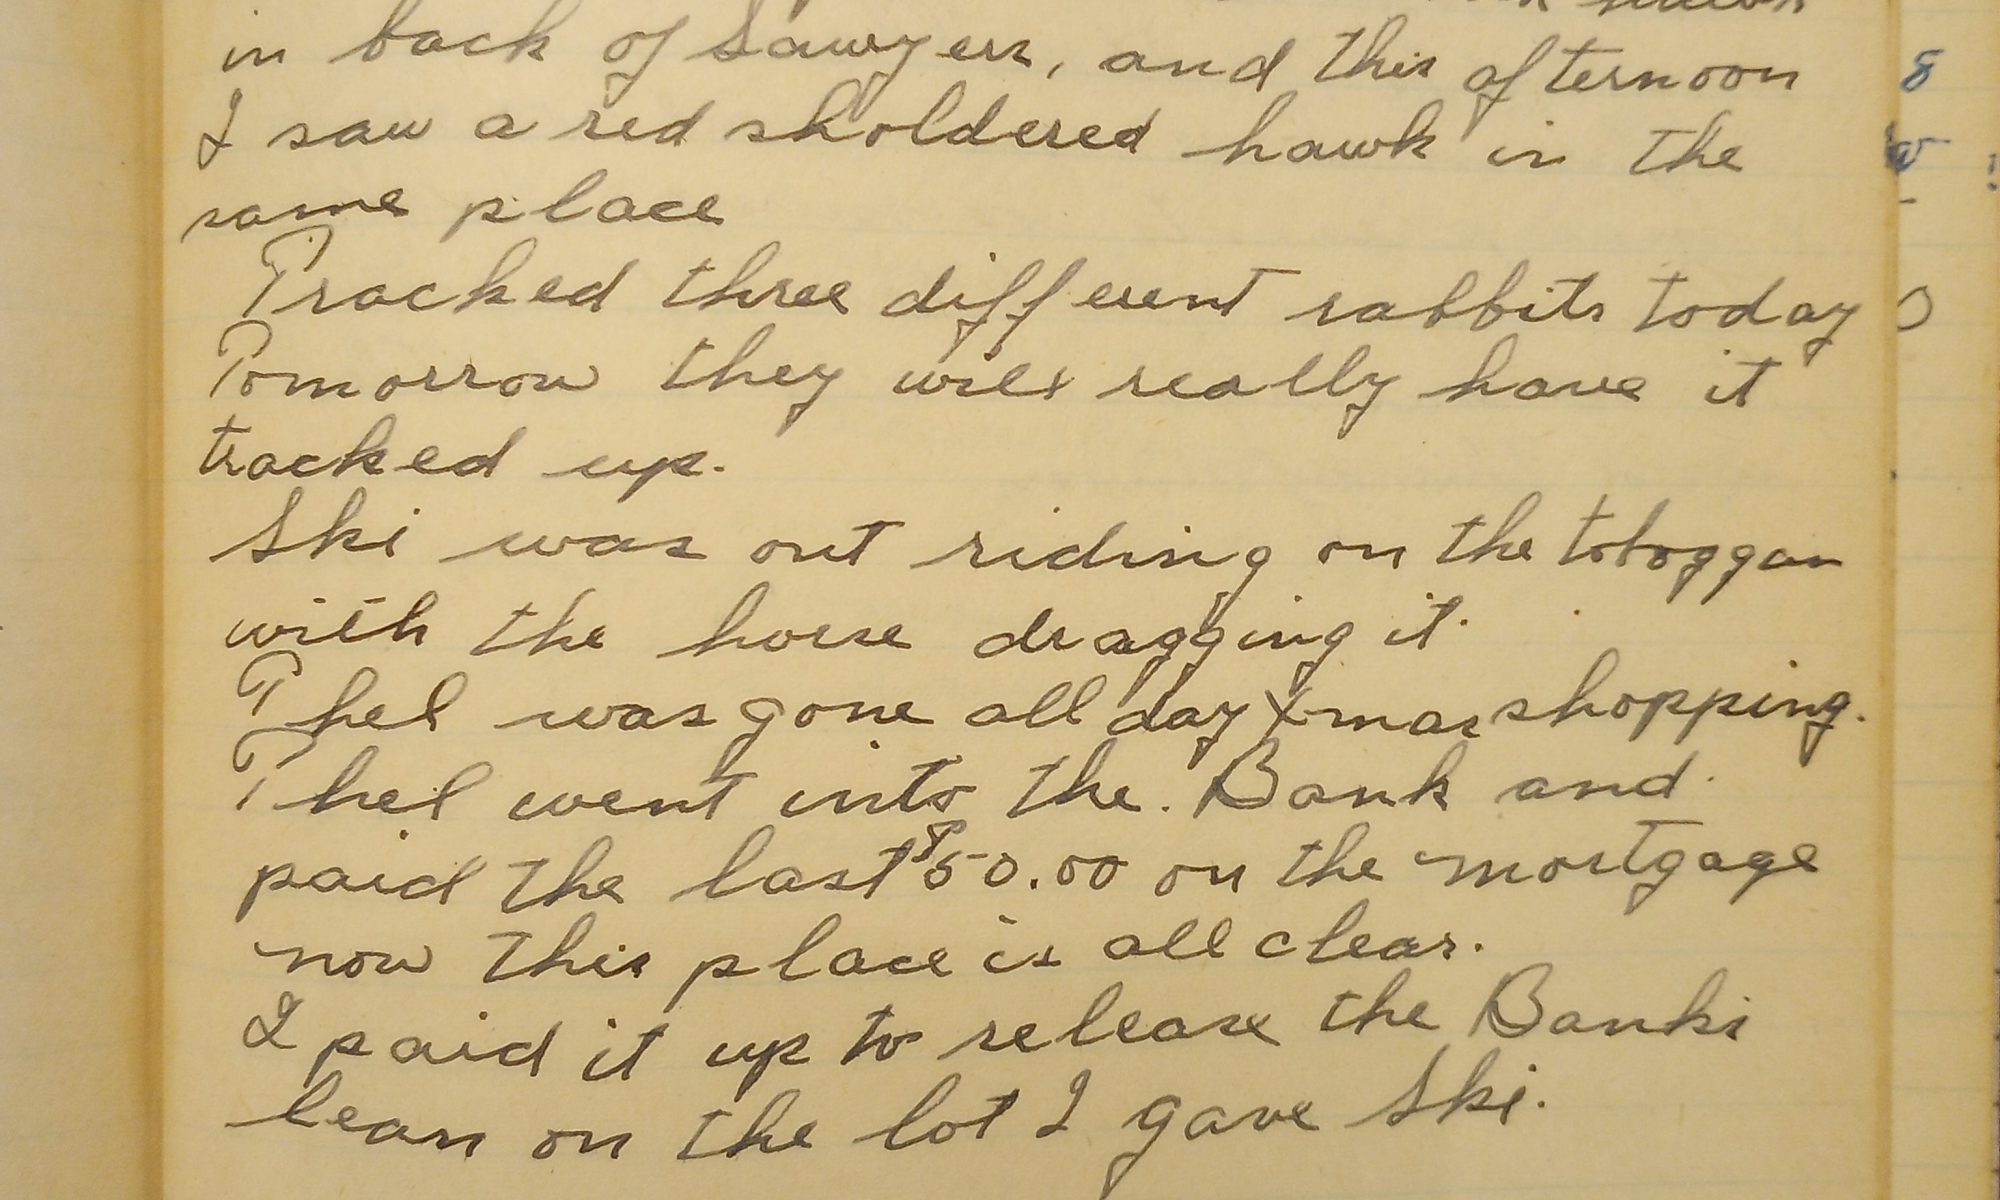 in back of Sawyers, and this afternoon
I saw a red sholdered hawk in the
same place
Tracked three different rabbits today
Tomorrow they will really have it
tracked up.
Ski was out riding on the toboggan
with the horse dragging it.
Thel was gone all day Xmas shopping.
Thel went into the. Bank and
paid the last $50.00 on the mortgage
now this place is all clear.
I paid it up to release the Banks
lean on the lot I gave Ski.